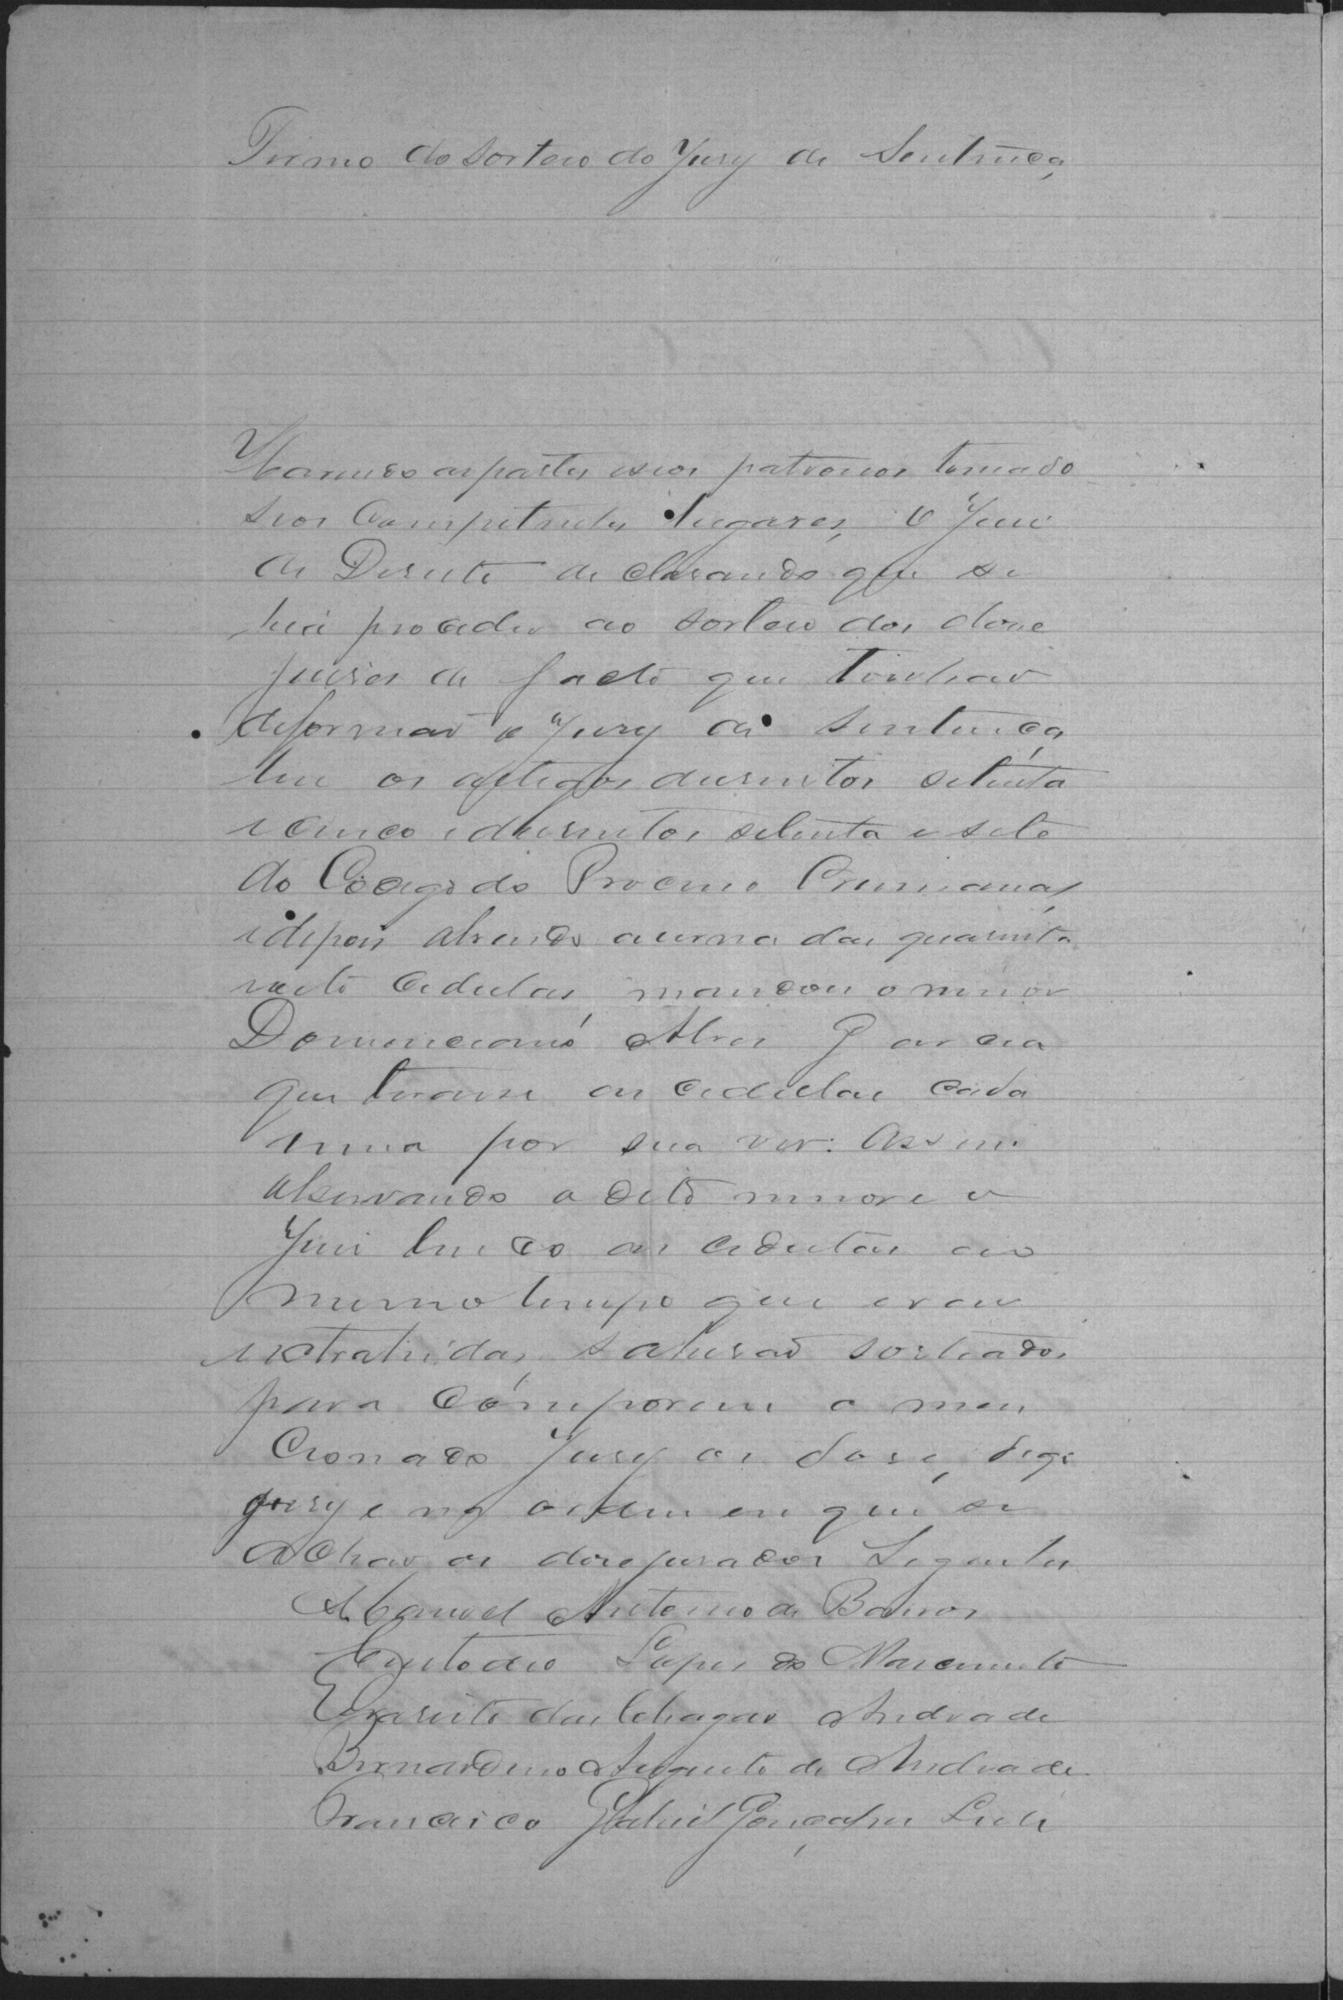 Termo do sorteio do Jury de Sentença
Havendo as partes e seos patronos tomado
seos competentes lugares, o Juiz
de Direito declarando que se
hia proceder ao sorteio dos doze
juises de facto que tinhão
de formar o Jury de sentença
leu os artigos dusentos setenta
e cinco e dusentos setenta e sete
do Codigo do Processo Criminal,
e depois abrindo a urna das quarenta
e oito cedulas, mandou o menor
Domenciano Alves Garcia
que tirasse as cedulas cada
uma por sua vez. Assim
observando o dito menor e o
Juiz lendo as cedulas ao
mesmo tempo que erão
extrahidas, sahirão sorteados
para comporem o men
cionado Jury os dose, digo
Jury e na ordem em que se
achão os doze jurados seguintes
Manoel Antonio de Barros
Custodio Lopes do Nascimento
Evaristo das Chagas Andrade
Bernardino Augusto de Andrade
Francisco Gabriel Gonçalves Leite